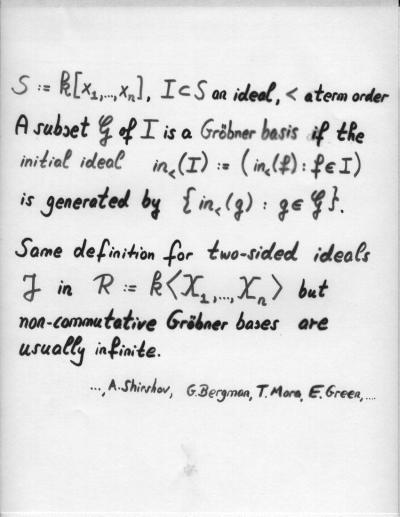 S := k[x₁,...,xₙ], I ⊂ S an ideal, < a term order
A subset 𝒢 of I is a Gröbner basis if the
initial ideal in<(I) := (in<(f) : f ∈ I)
is generated by {in<(g) : g ∈ 𝒢}.
Same definition for two-sided ideals
J in R := k⟨X₁,...,Xₙ⟩ but
non-commutative Gröbner bases are
usually infinite.
..., A. Shirshov, G. Bergman, T. Mora, E. Green, ....